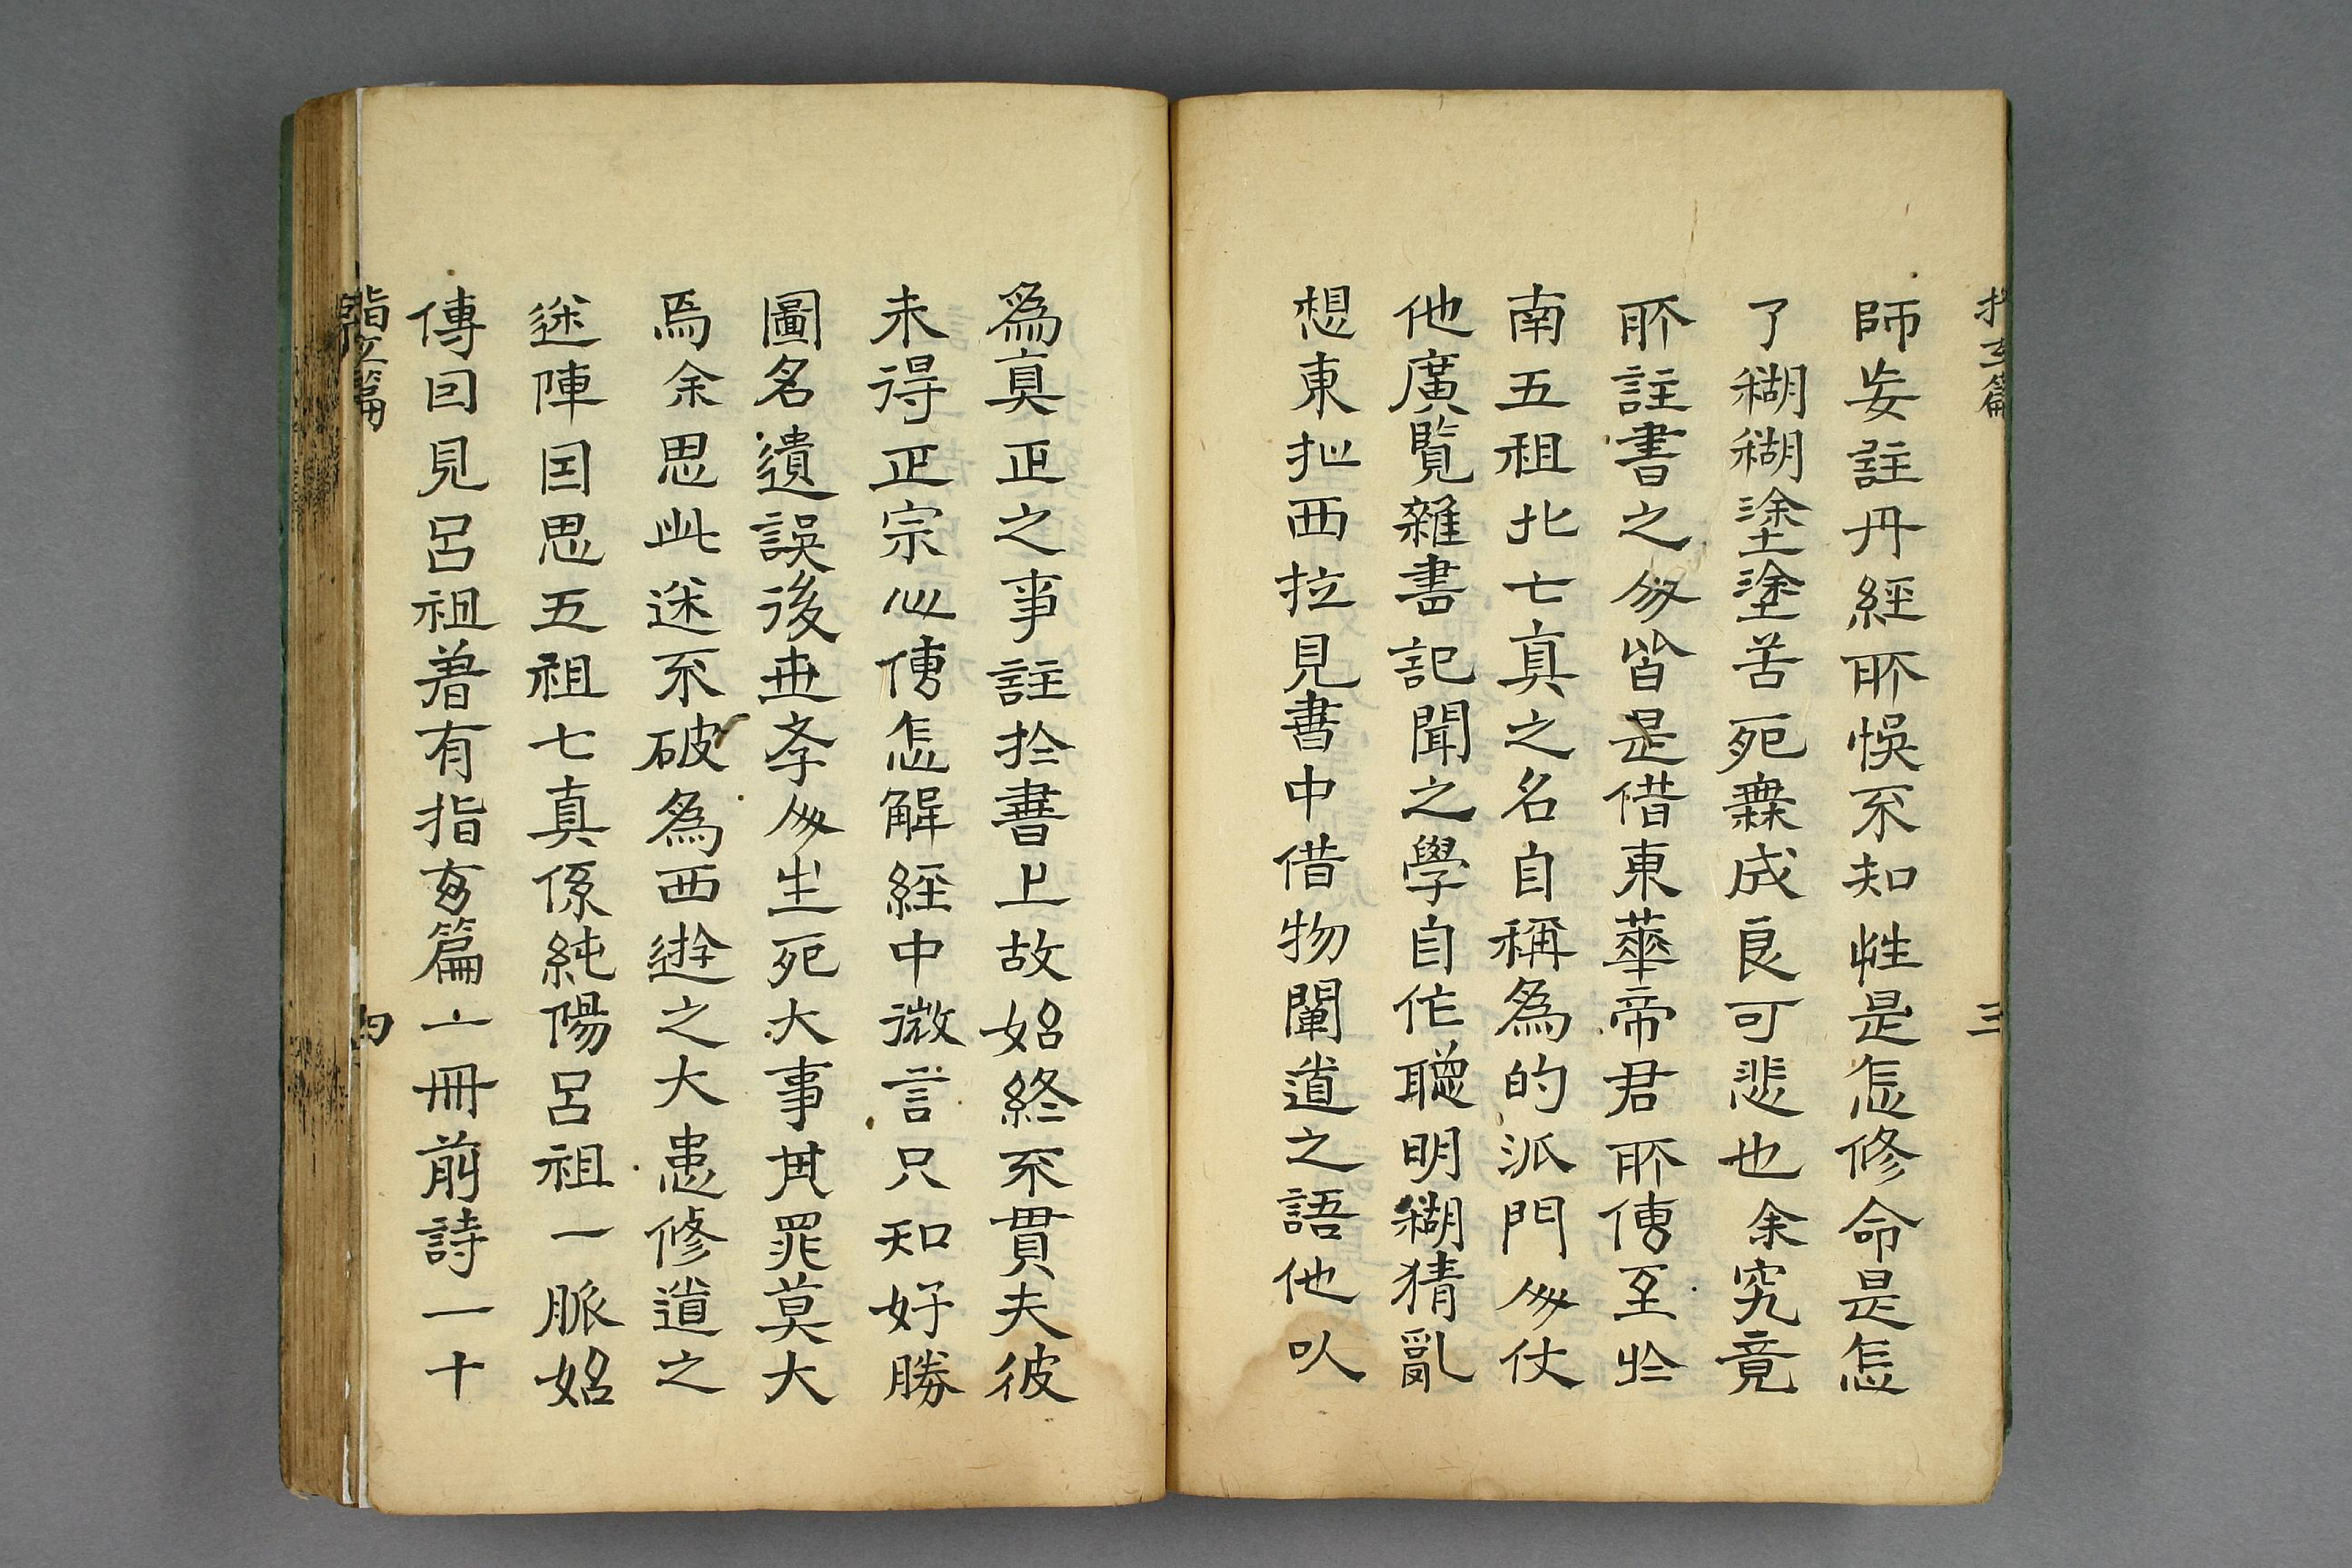 指玄篇 三
師妄註丹經所悞不知性是怎修命是怎
了糊糊塗塗苦死無成良可悲也余究竟
所註書之人皆是借東華帝君所傳至於
南五祖北七真之名自稱為的派門人仗
他廣覽雜書記聞之學自作聰明糊猜亂
想東扯西拉見書中借物闡道之語他以
為真正之事註於書上故始終不貫夫彼
未得正宗心傳怎解經中微言只知好勝
圖名遺誤後世學人生死大事其罪莫大
焉余思此迷不破為西遊之大患修道之
迷陣因思五祖七真係純陽呂祖一脈始
傳因見呂祖著有指玄篇一冊前詩一十
指玄篇 四